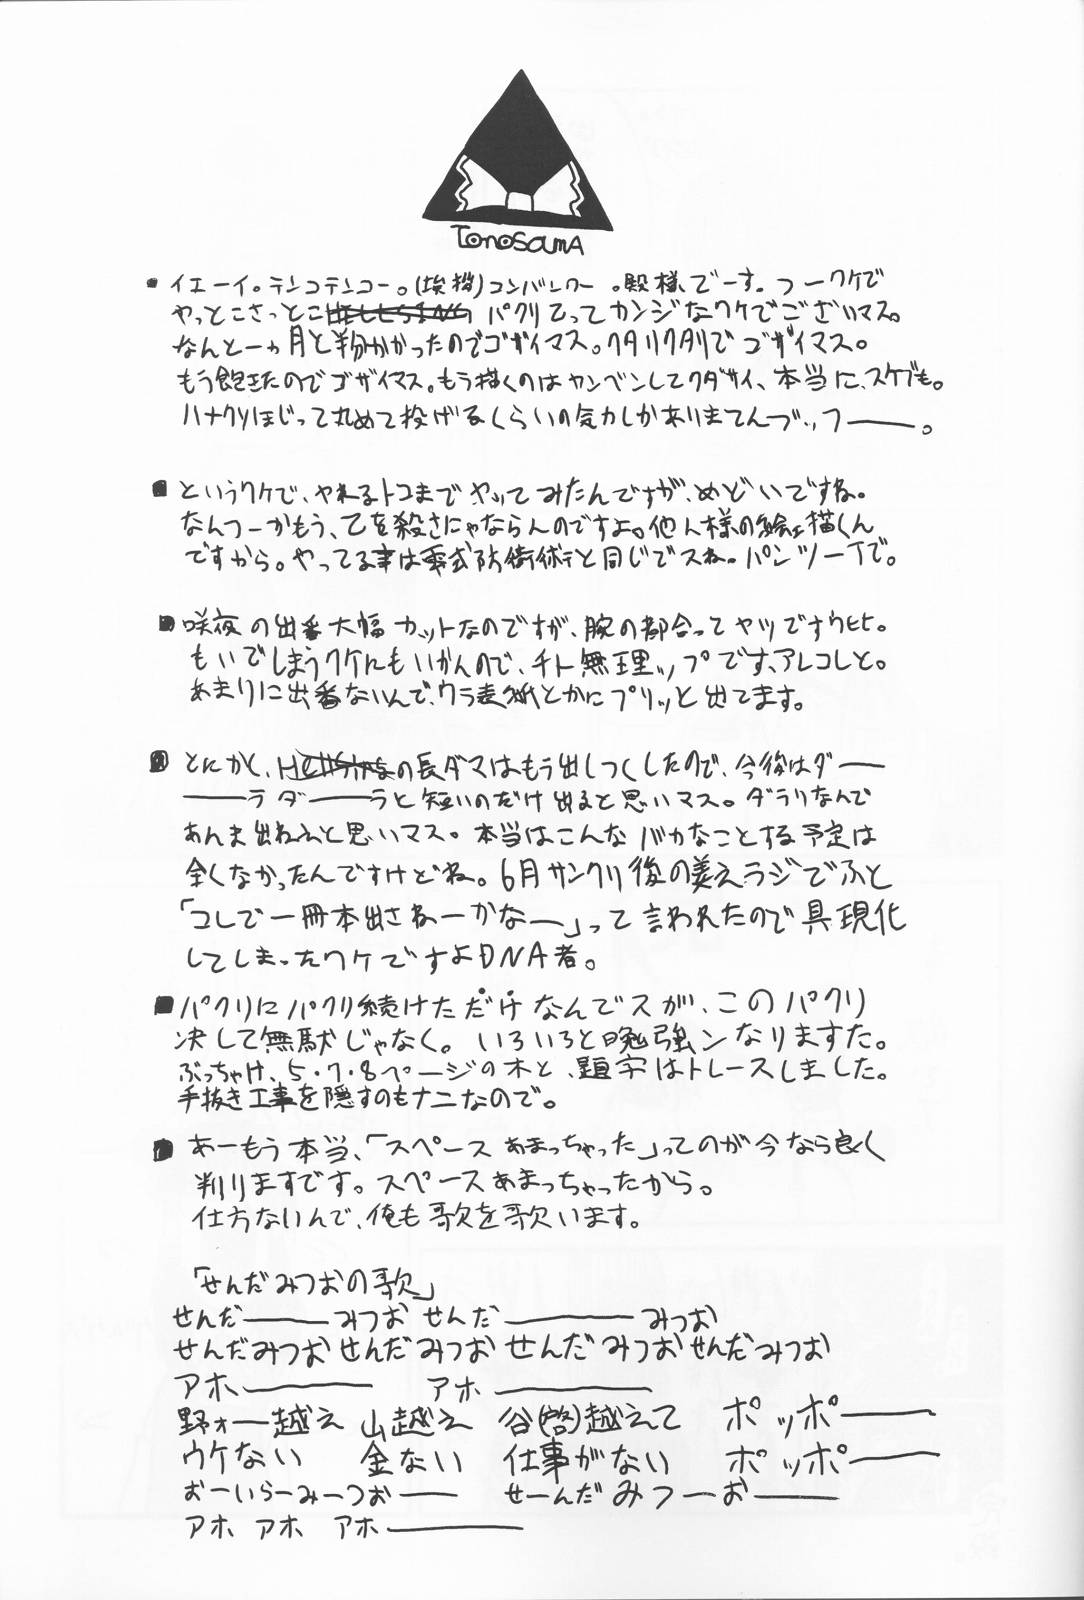 TonosamA
・イエーイ。テンコテンコー。(挨拶)コンバンワー。殿様でーす。つーワケで
やっとこさっとこHELLSING パクリてってカンジなワケでございマス。
なんと一ヵ月と半分かかったのでゴザイマス。クタリクタリでゴザイマス。
もう飽きたのでゴザイマス。もう描くのはカンベンしてクダサイ、本当に、スケブも。
ハナクソほじって丸めて投げるくらいの気力しかありませんブッフーー。
■というワケで、やれるトコまでヤッてみたんですが、めどいですね。
なんつーかもう、乙を殺さにゃならんのですよ。他人様の絵描くん
ですから。やってる事は零式防衛術と同じでスね。パンツ一丁で。
■咲夜の出番大幅カットなのですが、腕の都合ってヤツですウヒヒ。
もいでしまうワケにもいかんので、チト無理ップです、アレコレと。
あまりに出番ないんで、ウラ表紙とかにプリッと出てます。
■とにかく、Hellsingの長ダマはもう出しつくしたので、今後はダー
ーーラダーーラと短いのだけ出ると思いマス。ダラリなんで
あんま出ねえと思いマス。本当はこんなバカなことする予定は
全くなかったんですけどね。6月サンクリ後の美えラジでふと
「コレで一冊本出さねーかなー」って言われたので具現化
してしまったワケですよDNA者。
■パクリにパクリ続けただけなんでスが、このパクリ
決して無駄じゃなく。いろいろと勉強ンなりますた。
ぶっちゃけ、5・7・8ページの木と、題字はトレースしました。
手抜き工事を隠すのもナニなので。
■あーもう本当、「スペースあまっちゃった」ってのが今なら良く
判りますです。スペースあまっちゃったから。
仕方ないんで、俺も歌を歌います。
「せんだみつおの歌」
せんだーーみつお せんだーーーみつお
せんだみつお せんだみつお せんだみつお せんだみつお
アホーーー アホーーー
野ォー越え 山越え 谷(啓)越えて ポッポーー
ウケない 金ない 仕事がない ポッポーー
おーいらーみーつおーー せーんだみつーおーー
アホ アホ アホーーー